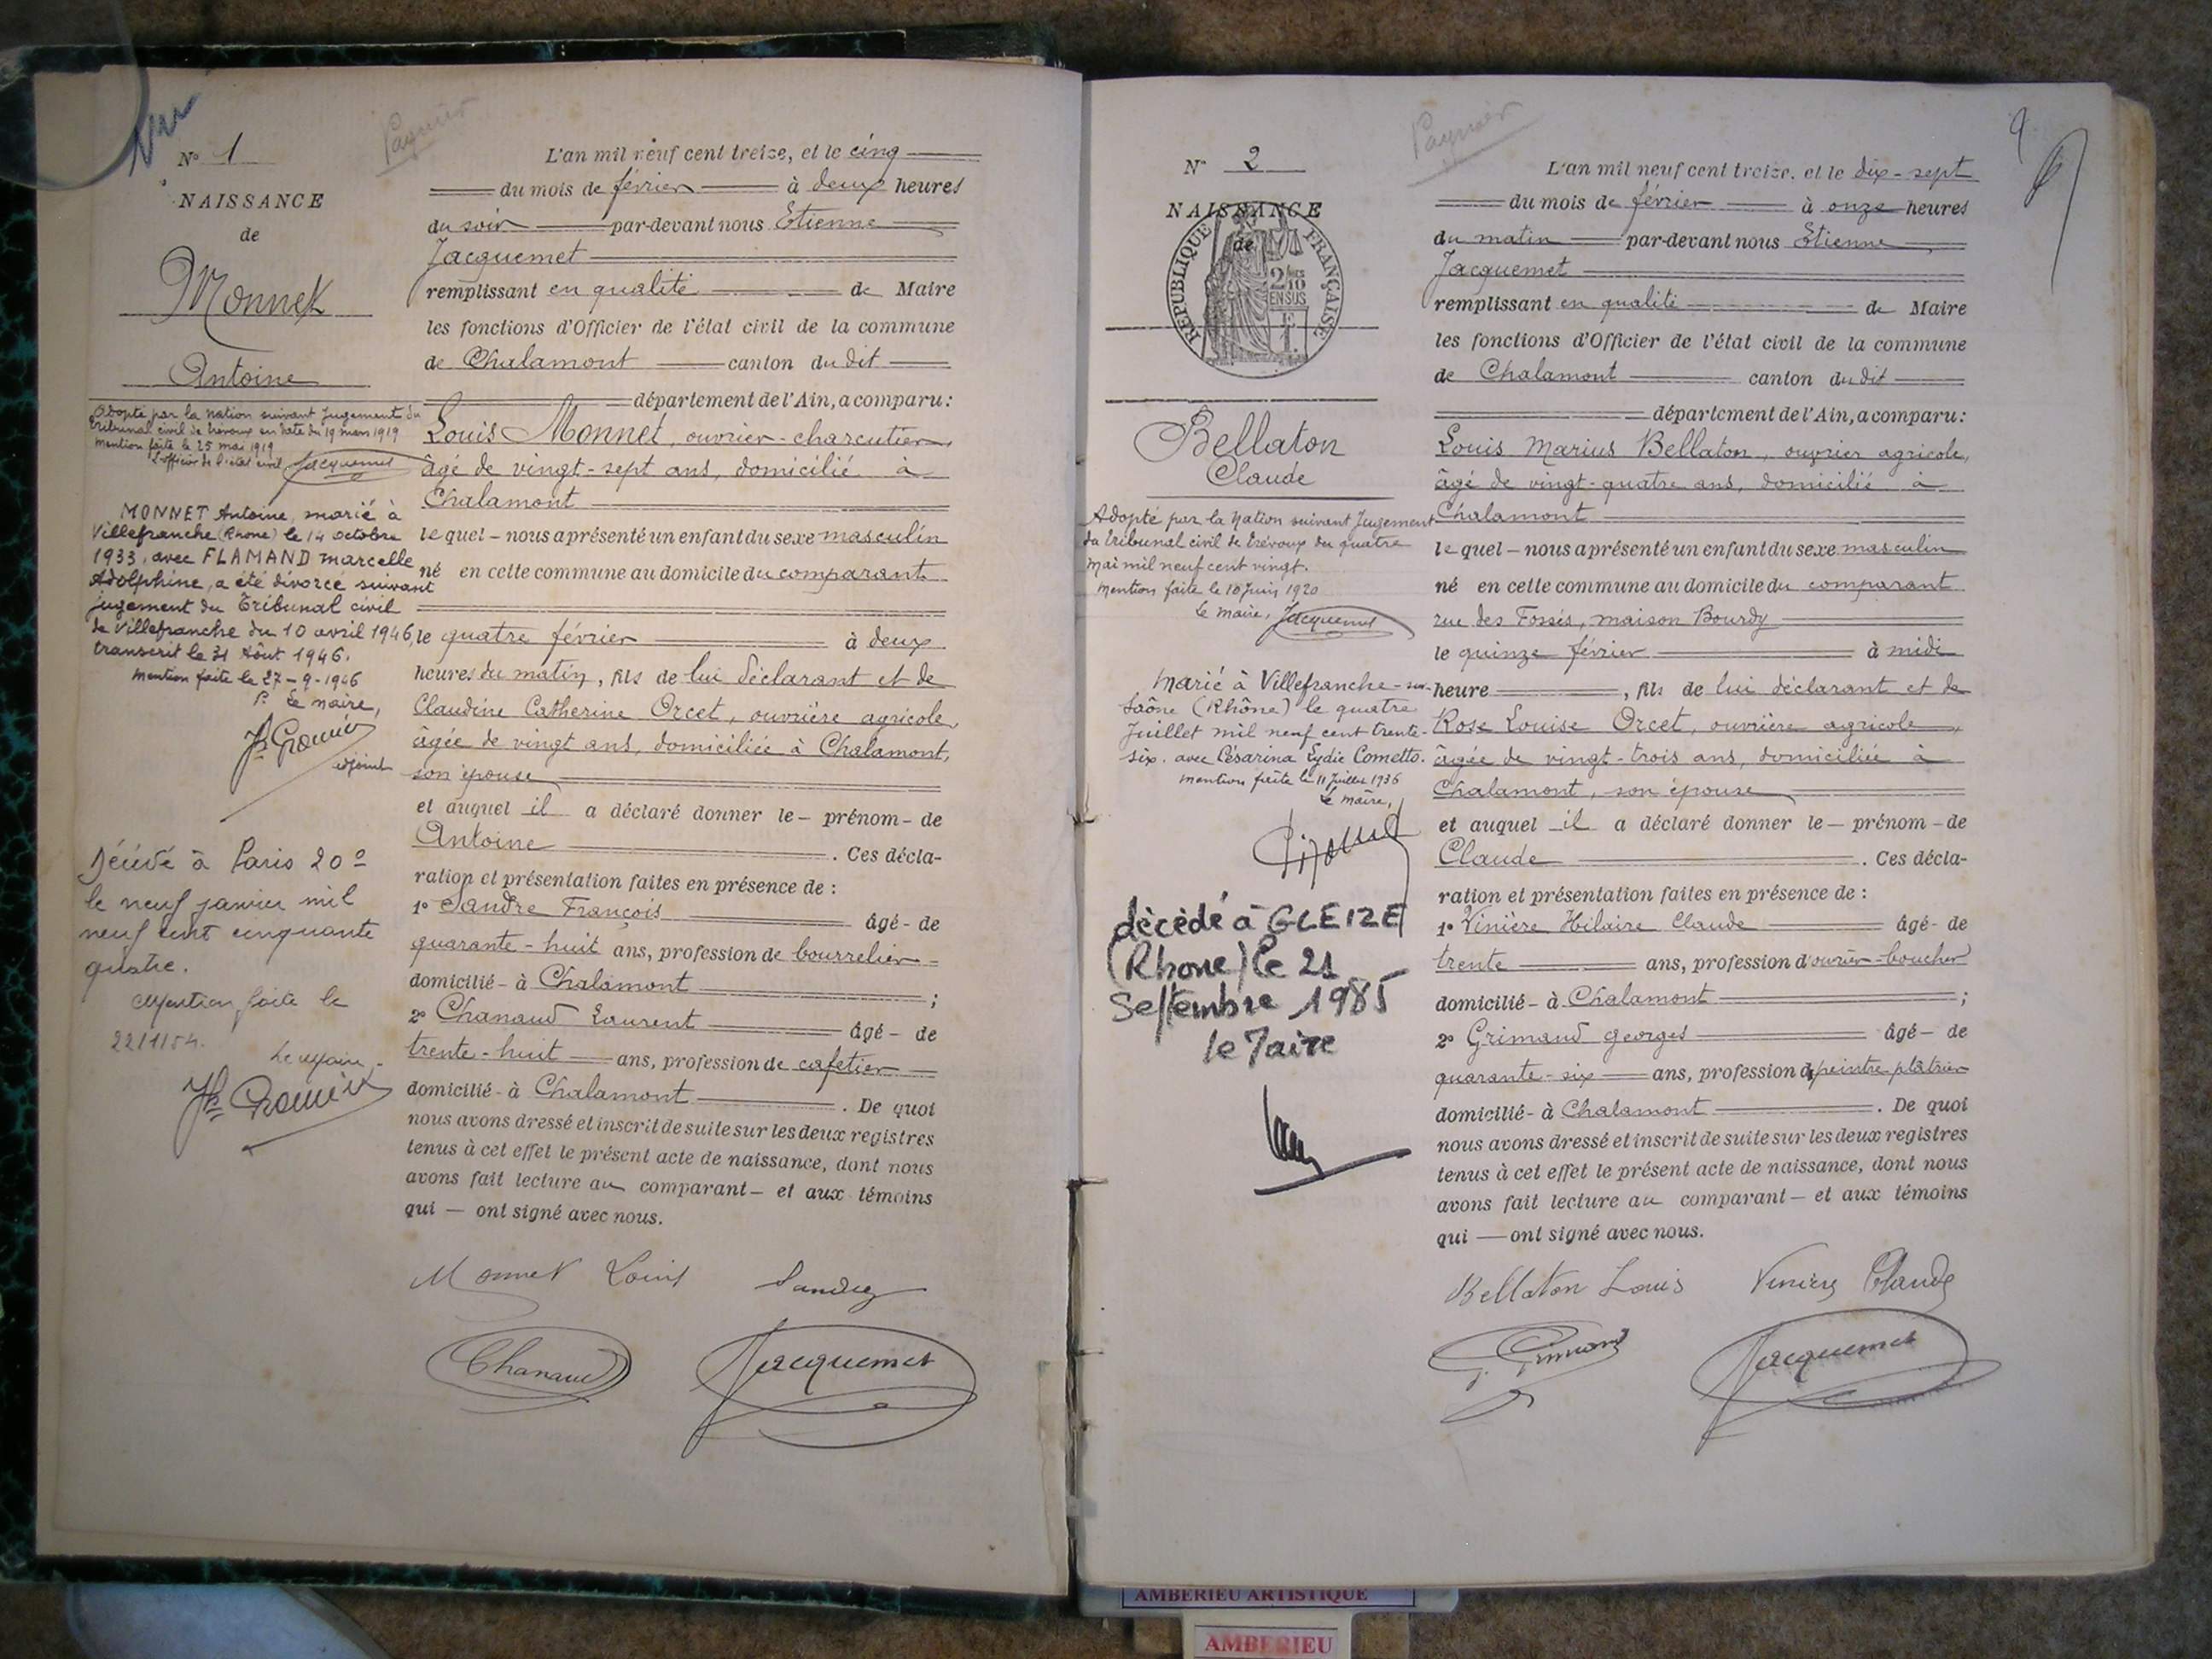 Nº 1
NAISSANCE
de
Monnet
Antoine
Adopté par la nation suivant Jugement du
tribunal civil de Trévoux en date du 19 mars 1919
Mention faite le 25 mai 1919
L'officier de l'état civil Jacquemet
MONNET Antoine, marié à
Villefranche (Rhône) le 14 octobre
1933, avec FLAMAND Marcelle
Adolphine, a été divorcé suivant
jugement du Tribunal civil
de Villefranche du 10 avril 1946,
transcrit le 31 Août 1946.
Mention faite le 27-9-1946
P. Le Maire,
adjoint
Décédé à Paris 20e
le neuf janvier mil
neuf cent cinquante
quatre.
Mention faite le
22/1/54.
Le Maire
L'an mil neuf cent treize, et le cinq
du mois de février à deux heures
du soir par-devant nous Etienne
Jacquemet
remplissant en qualité de Maire
les fonctions d'Officier de l'état civil de la commune
de Chalamont canton du dit
département de l'Ain, a comparu:
Louis Monnet, ouvrier-charcutier,
âgé de vingt-sept ans, domicilié à
Chalamont
lequel - nous a présenté un enfant du sexe masculin
né en cette commune au domicile du comparant
le quatre février à deux
heures du matin, fils de lui déclarant et de
Claudine Catherine Orcet, ouvrière agricole,
âgée de vingt ans, domiciliée à Chalamont,
son épouse
et auquel il a déclaré donner le - prénom - de
Antoine. Ces décla-
ration et présentation faites en présence de :
1º Sandre François âgé - de
quarante-huit ans, profession de bourrelier
domicilié - à Chalamont ;
2º Chanaud Laurent âgé - de
trente-huit ans, profession de cafetier
domicilié - à Chalamont. De quoi
nous avons dressé et inscrit de suite sur les deux registres
tenus à cet effet le présent acte de naissance, dont nous
avons fait lecture au comparant - et aux témoins
qui — ont signé avec nous.
Monnet Louis Sandre
Chanaud Jacquemet
9
Nº 2
NAISSANCE
de
RÉPUBLIQUE FRANÇAISE
2/10
EN SUS
Bellaton
Claude
Adopté par la Nation suivant Jugement
du tribunal civil de Trévoux du quatre
mai mil neuf cent vingt.
Mention faite le 10 juin 1920
Le Maire, Jacquemet
Marié à Villefranche-sur-
Saône (Rhône) le quatre
Juillet mil neuf cent trente-
six. avec Césarina Lydie Cometto.
Mention faite le 11 Juillet 1936
Le Maire,
décédé à GLEIZE
(Rhone) le 21
Septembre 1985
le Maire
L'an mil neuf cent treize, et le dix-sept
du mois de février à onze heures
du matin par-devant nous Etienne
Jacquemet
remplissant en qualité de Maire
les fonctions d'Officier de l'état civil de la commune
de Chalamont canton du dit
département de l'Ain, a comparu:
Louis Marius Bellaton, ouvrier agricole,
âgé de vingt-quatre ans, domicilié à
Chalamont
lequel - nous a présenté un enfant du sexe masculin
né en cette commune au domicile du comparant
rue des Fossés, maison Bourdy
le quinze février à midi
heure, fils de lui déclarant et de
Rose Louise Orcet, ouvrière agricole,
âgée de vingt-trois ans, domiciliée à
Chalamont, son épouse
et auquel il a déclaré donner le - prénom - de
Claude. Ces décla-
ration et présentation faites en présence de :
1º Vinière Hilaire Claude âgé - de
trente ans, profession d'ouvrier-boucher
domicilié - à Chalamont ;
2º Grimaud Georges âgé - de
quarante-six ans, profession de peintre plâtrier
domicilié - à Chalamont. De quoi
nous avons dressé et inscrit de suite sur les deux registres
tenus à cet effet le présent acte de naissance, dont nous
avons fait lecture au comparant - et aux témoins
qui — ont signé avec nous.
Bellaton Louis Vinière Claude
Jacquemet
AMBERIEU ARTISTIQUE
AMBERIEU